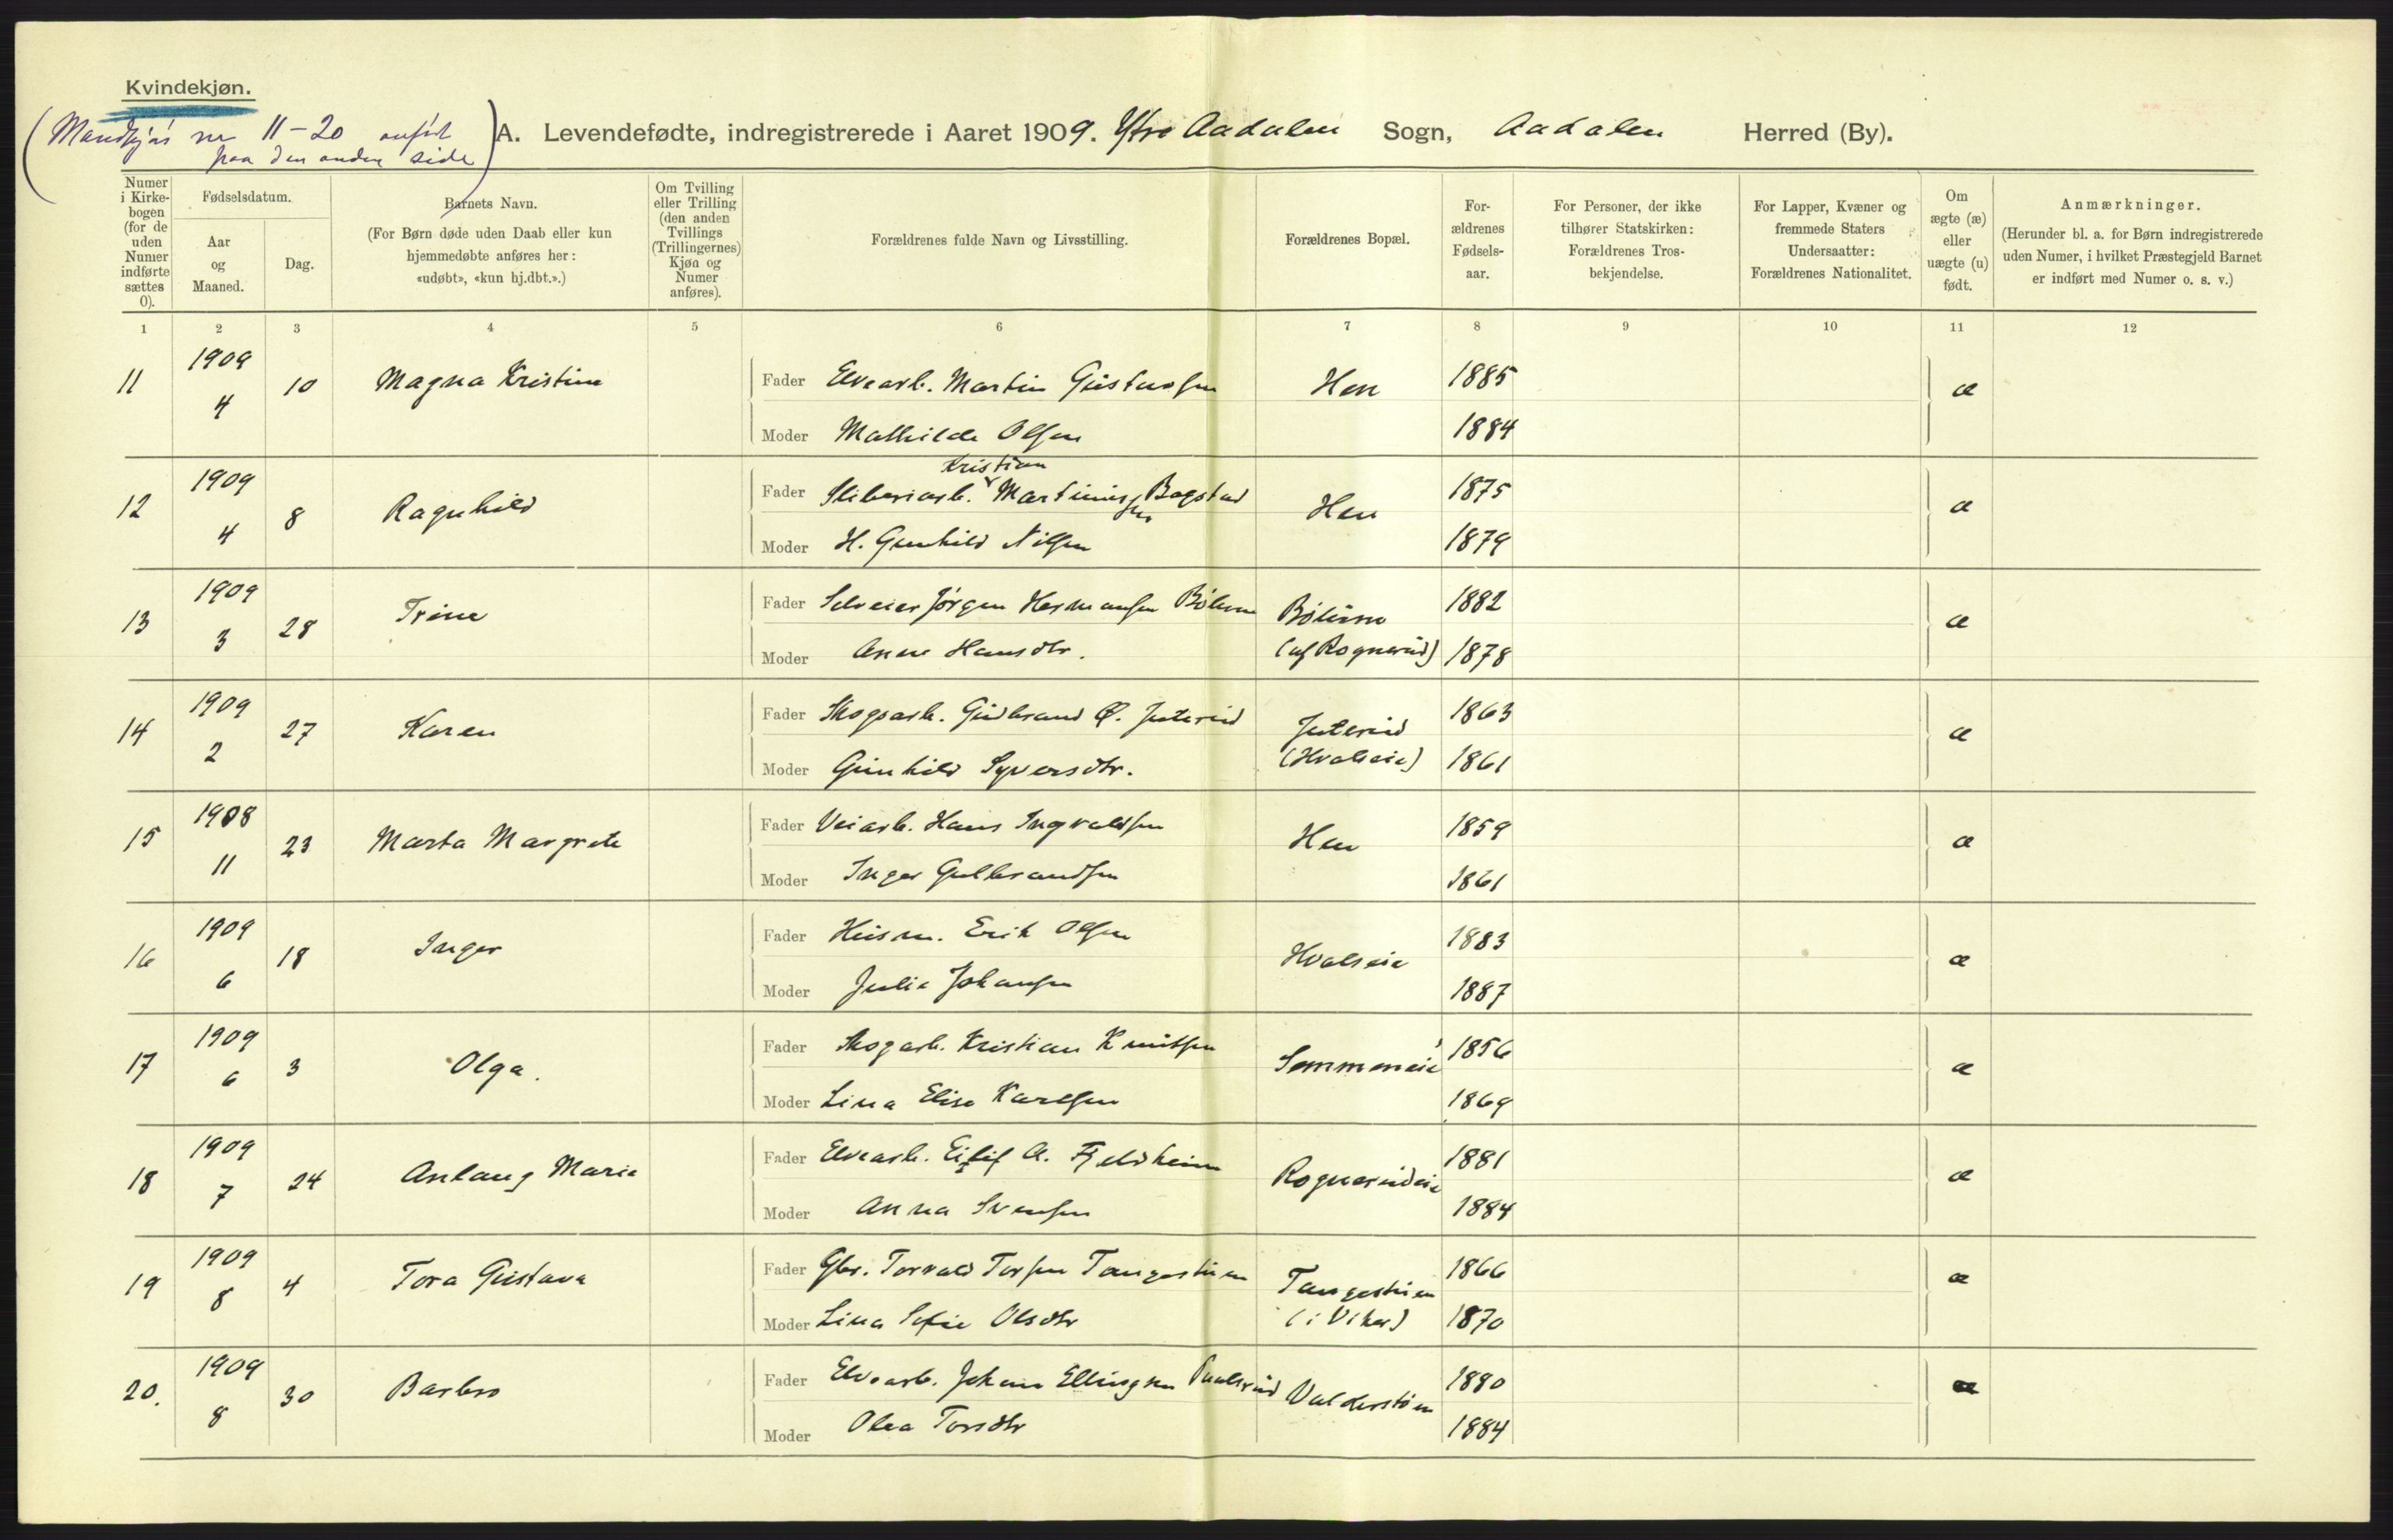 Kvindekjøn.
(Mandkjøn nr 11-20 anført
paa den anden side)
A. Levendefødte, indregistrerede i Aaret 1909. Ytre Aadalen Sogn, Aadalen Herred (By).
Numer i Kirkebogen (for de uden Numer indførte sættes 0).
Fødselsdatum.
Aar og Maaned.
Dag.
Barnets Navn.
(For Børn døde uden Daab eller kun hjemmedøbte anføres her: «udøbt», «kun hj.dbt.».)
Om Tvilling eller Trilling (den anden Tvillings (Trillingernes) Kjøn og Numer anføres).
Forældrenes fulde Navn og Livsstilling.
Forældrenes Bopæl.
For-ældrenes Fødsels-aar.
For Personer, der ikke tilhører Statskirken: Forældrenes Tros-bekjendelse.
For Lapper, Kvæner og fremmede Staters Undersaatter: Forældrenes Nationalitet.
Om ægte (æ) eller uægte (u) født.
Anmærkninger.
(Herunder bl. a. for Børn indregistrerede uden Numer, i hvilket Præstegjeld Barnet er indført med Numer o. s. v.)
1 2 3 4 5 6 7 8 9 10 11 12
11 1909 4 10 Magna Kristine Fader Elvearb. Martin Gustavsen Hen 1885 æ
Moder Mathilde Olsen 1884
12 1909 4 8 Ragnhild Fader Sliberiarb. Kristian Martinussen Bagstad Hen 1875 æ
Moder H. Gunhild Nilsen 1879
13 1909 3 28 Trine Fader Selveier Jørgen Hermansen Bølum Bølum 1882 æ
Moder Anne Hansdtr. (af Rognerud) 1878
14 1909 2 27 Karen Fader Skogsarb. Gudbrand O. Juterud Juterud 1863 æ
Moder Gunhild Syversdtr. (Hvalseie) 1861
15 1908 11 23 Marta Margrete Fader Veiarb. Hans Ingvaldsen Hen 1859 æ
Moder Inger Gulbrandsen 1861
16 1909 6 18 Inger Fader Husm. Erik Olsen Hvalseie 1883 æ
Moder Julie Johansen 1887
17 1909 6 3 Olga. Fader Skogarb. Kristian Knutsen Semmeneie 1856 æ
Moder Lina Elise Karlsen 1869
18 1909 7 24 Anlaug Marie Fader Elvearb. Eilif A. Fjeldheim Rognerudeie 1881 æ
Moder Anna Svensen 1884
19 1909 8 4 Tora Gustava Fader Gbr. Torvald Torsen Tangestuen Tangestuen 1866 æ
Moder Lina Sofie Olsdtr (i Viker) 1870
20. 1909 8 30 Barbro Fader Elvearb. Johan Ellingsen Paalsrud Valderstøen 1880 æ
Moder Olea Torsdtr 1884